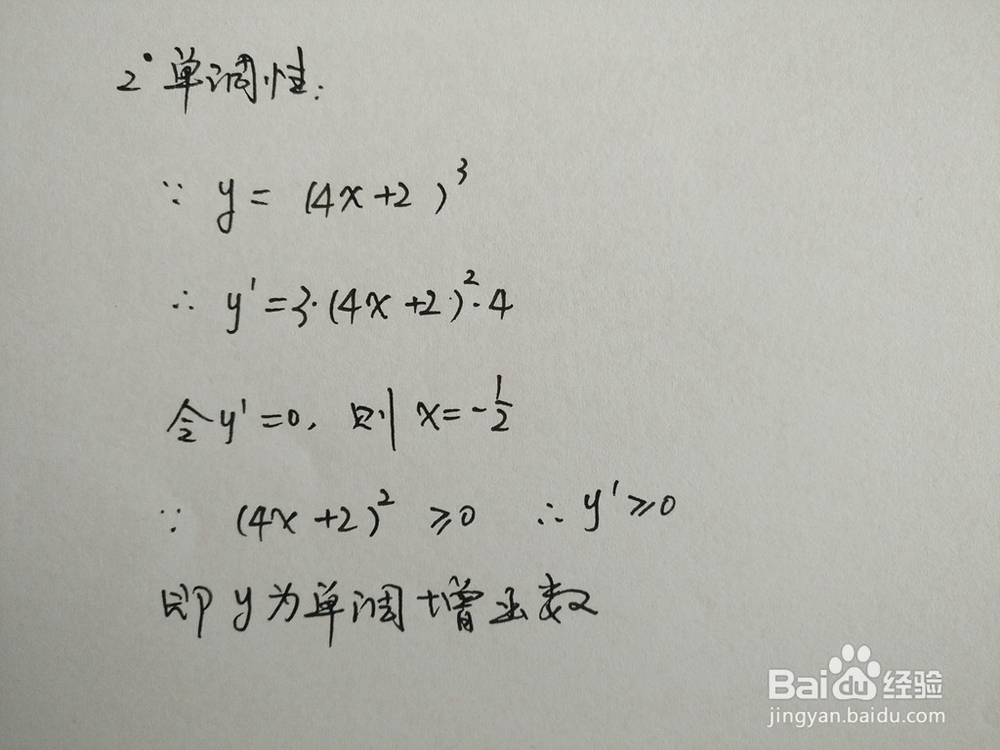 2° 单调性:
∵ y = (4x+2)³
∴ y'=3·(4x+2)²·4
令y'=0, 则 x=-1/2
∵ (4x+2)² ≥0 ∴ y'≥0
即y为单调增函数
Baidu 经验
jingyan.baidu.com